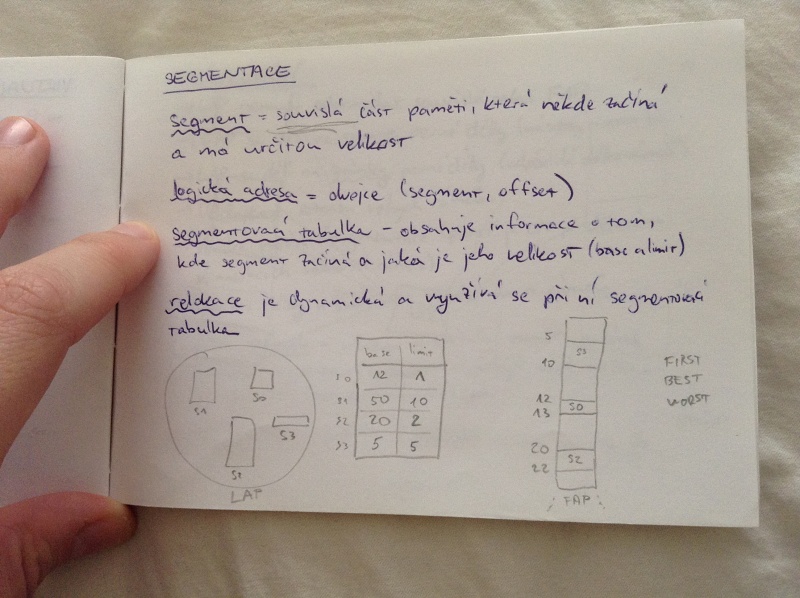 SEGMENTACE
segment = souvislá část paměti, která někde začíná
a má určitou velikost
logická adresa = dvojce (segment, offset)
segmentovací tabulka - obsahuje informace o tom,
kde segment začíná a jaká je jeho velikost (base a limit)
relokace je dynamická a využívá se při ní segmentovací
tabulka
S1
S0
S3
S2
LAP
base limit
S0 12 1
S1 50 10
S2 20 2
S3 5 5
5
S3
10
12
S0
13
20
S2
22
FAP
FIRST
BEST
WORST